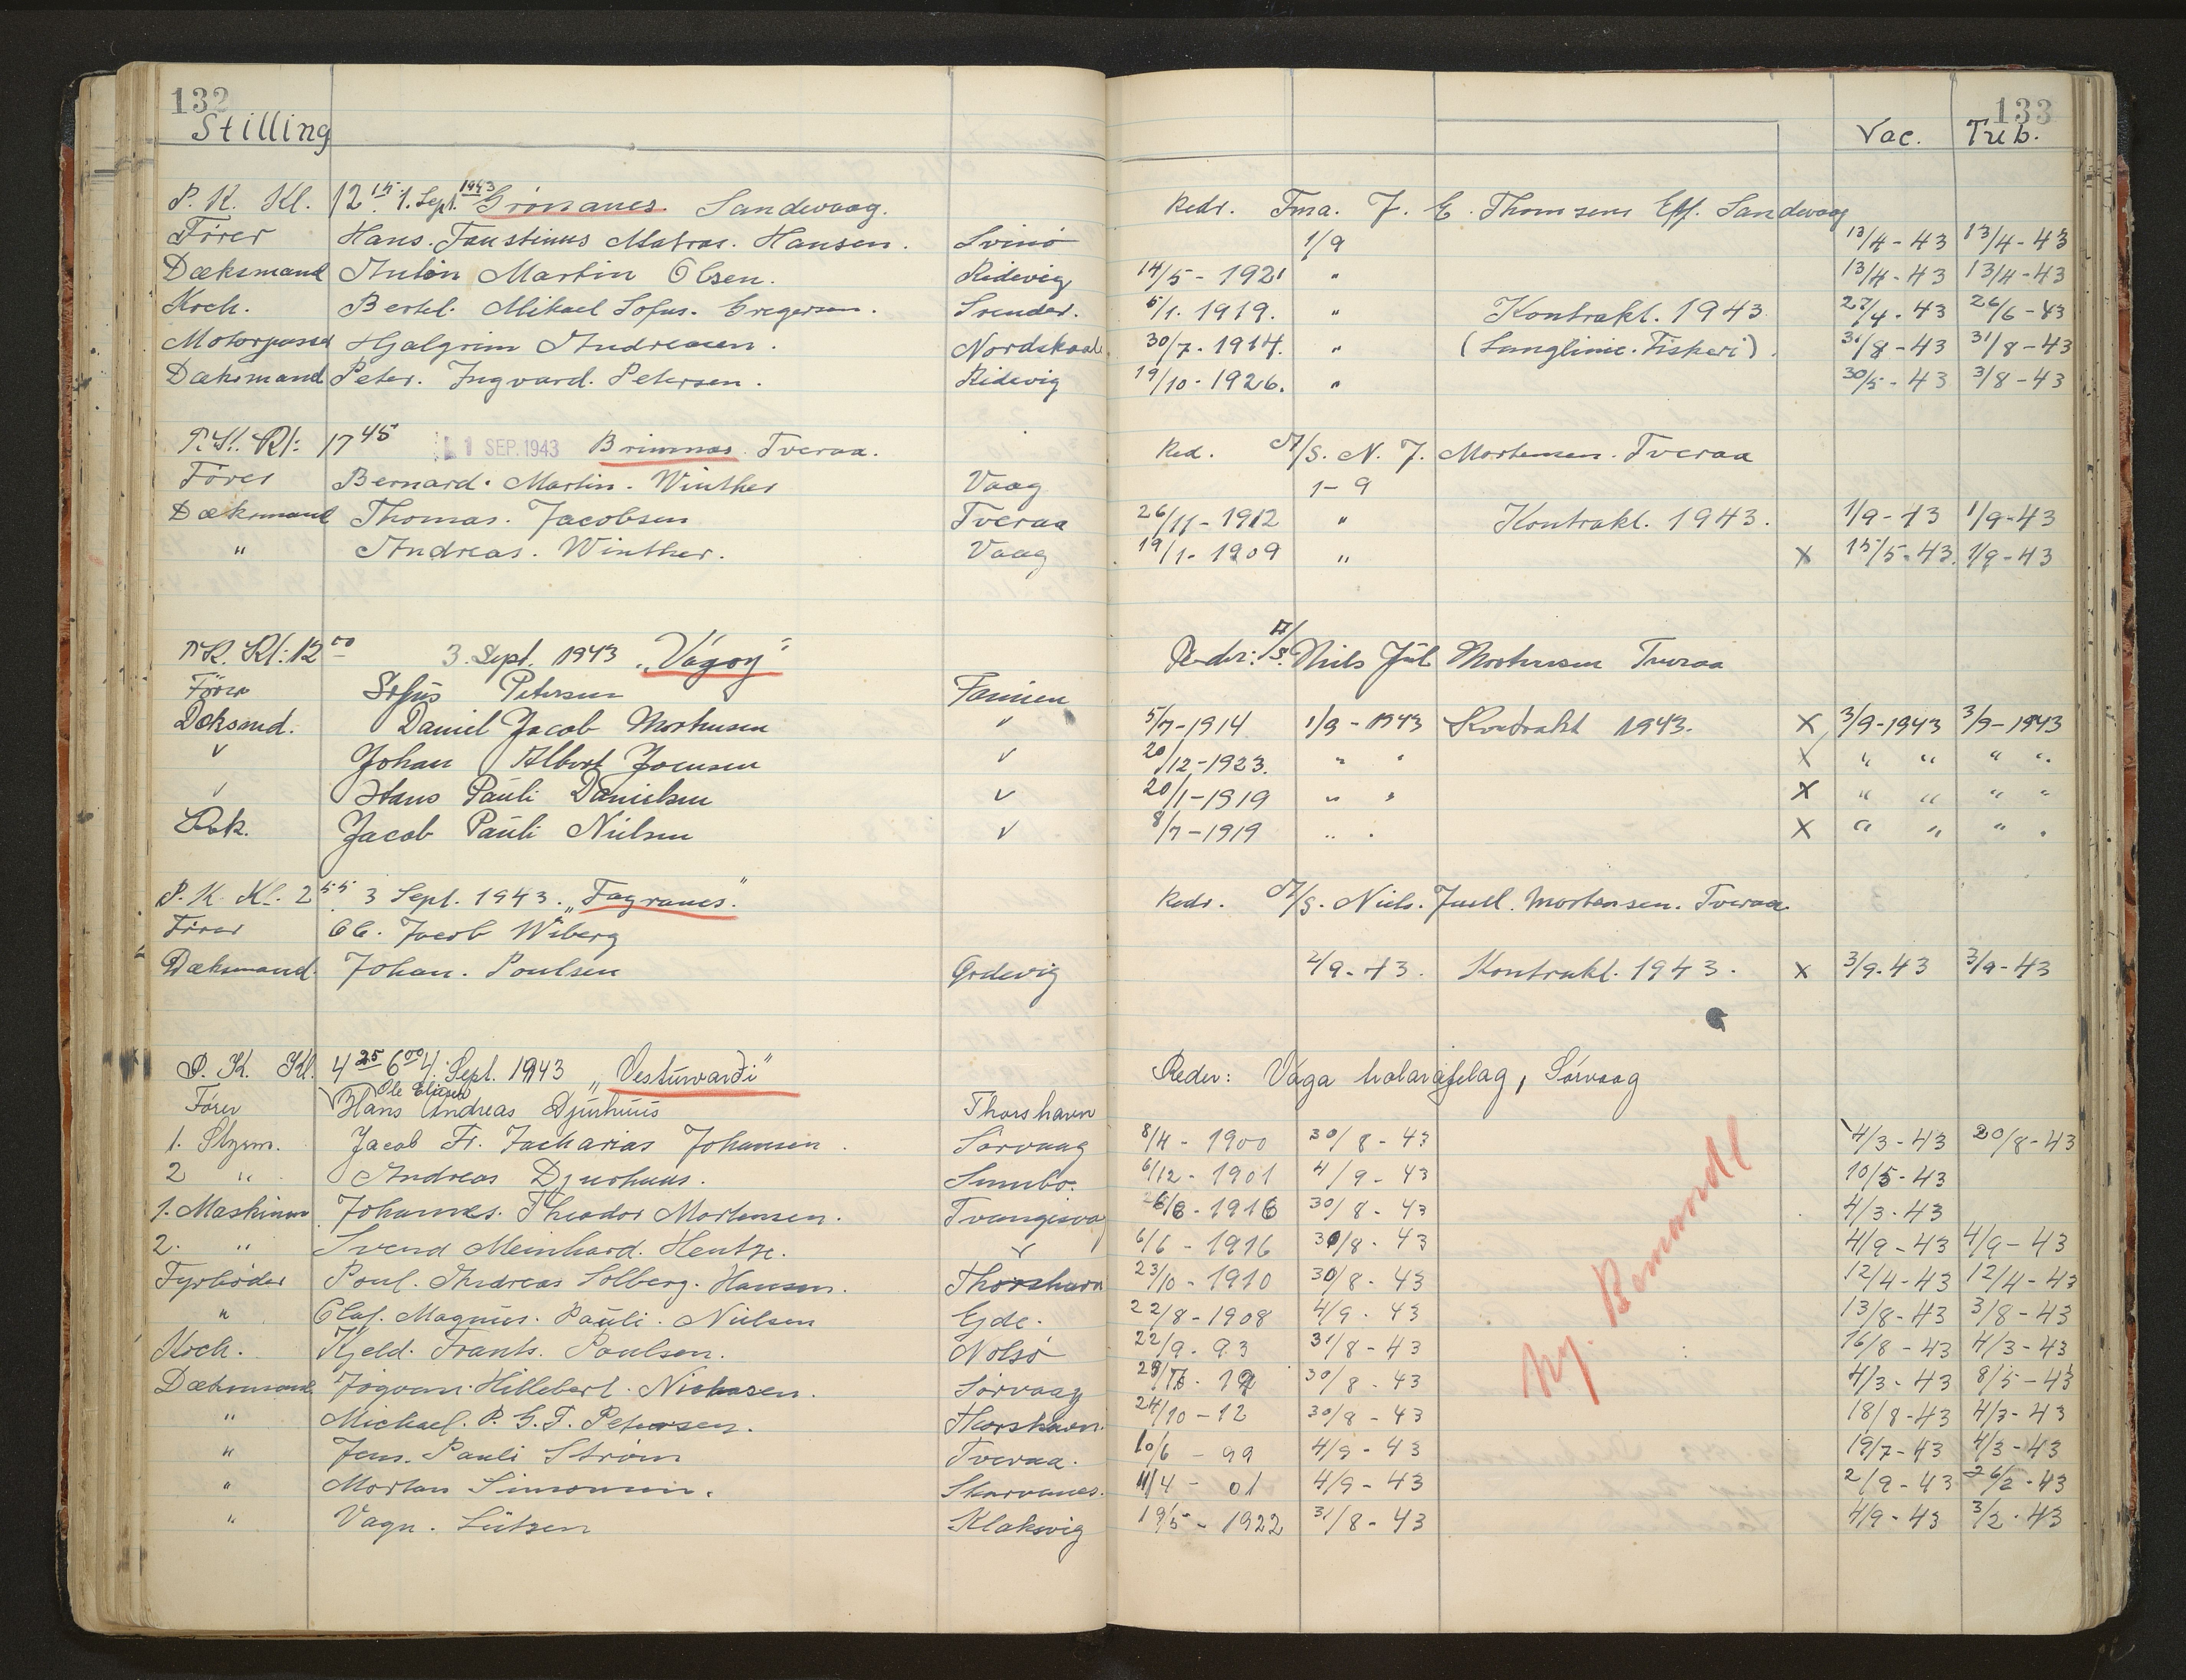 132 133
Stilling Vac. Tub.
P. K. Kl. 12 15. 1. Sept. 1943 Grønanes Sandevaag. Redr. Fma. J. E. Thomsens Eff. Sandevaag
Fører Hans. Faustinus Matras. Hansen. Svinø 1/9 13/4-43 13/4-43
Dæksmand Anton Martin Olsen. Ridevig 14/5-1921 " 13/4-43 13/4-43
Koch. Bertel. Mikael Sofus. Gregersen. Svender. 5/1.1919. " Kontrakt. 1943 27/4-43 26/6-43
Motorpasser Hjalgrim Andreasen. Nordskaale 30/7-1914. " (Langlinie. Fiskeri). 31/8-43 31/8-43
Dæksmand Peter. Ingvard. Petersen. Ridevig 19/10-1926. " 30/5-43 3/8-43
P. K. Kl: 17 45 1 SEP. 1943 Brimnes. Tveraa. Red. A/S. N. J. Mortensen. Tveraa
Fører Bernard. Martin. Winther Vaag 1-9
Dæksmand Thomas. Jacobsen Tveraa 26/11-1912 " Kontrakt. 1943. 1/9-43 1/9-43
" Andreas. Winther. Vaag 19/1-1909 " x 15/5-43. 1/9-43
P.K. Kl: 12 00 3. Sept. 1943 "Vágoy" Reder: A/S. Niels Jul Mortensen Tveraa
Fører Sofus Petersen Famien
Doksmd. Daniel Jacob Mortensen " 5/7-1914 1/9-1943 Kontrakt 1943. x 3/9-1943 3/9-1943
" Johan Albert Joensen " 20/12-1923. " " x " " " "
" Hans Pauli Danielsen " 20/1-1919 " " x " " " "
Kok. Jacob Pauli Nielsen " 8/7-1919 " " x " " " "
P. K. Kl. 2 55 3 Sept. 1943. "Fagranes." Redr. A/S. Niels. Juell. Mortensen. Tveraa.
Fører Ol. Jacob Wiberg
Dæksmand. Johan. Poulsen Ordevig 2/9-43. Kontrakt. 1943. x 3/9-43 3/9-43
P. K. Kl. 4 25 6 00 4. Sept. 1943 "Vesturvarði" Reder: Vága trolarafelag, Sørvaag
Ole Eliesen
Fører Hans Andreas Djurhuus Thorshavn
1. Styrm. Jacob Fr. Zacharias Johansen. Sørvaag 8/4-1900 30/8-43 4/3-43 20/8-43
2 " Andreas Djurhuus. Sumbø. 6/12-1901 4/9-43 10/5-43
1. Maskinm. Johannes. Theodor Mortensen. Tvangesvaag 30/8-43 4/3-43
2. " Svend Meinhard. Hentze. " 6/6-1916 30/8-43 4/9-43 4/9-43
Fyrbøder Poul. Andreas Solberg. Hansen. Thorshavn 23/10-1910 30/8-43 12/4-43 12/4-43
" Olaf. Magnus. Pauli. Nielsen Ejde. 22/8-1908 4/9-43 13/8-43 3/8-43
Koch. Kjeld. Frants. Poulsen. Nolsø 22/9-93 31/8-43 16/8-43 4/3-43
Dæksmand. Jógvan. Hillebert. Niclasen. Sørvaag 30/8-43 4/3-43 8/5-43
" Michael. P. G. F. Petersen. Thorshavn. 24/10-12 30/8-43 18/8-43 4/3-43
" Jens. Pauli Strøm Tveraa. 10/6-99 4/9-43 19/7-43 4/3-43
" Morten Simonsen. Skarvanes. 11/4-01 4/9-43 2/9-43 26/2-43
" Vagn. Lützen Klaksvig 19/5-1922 31/8-43 4/9-43 3/2-43
Ny.